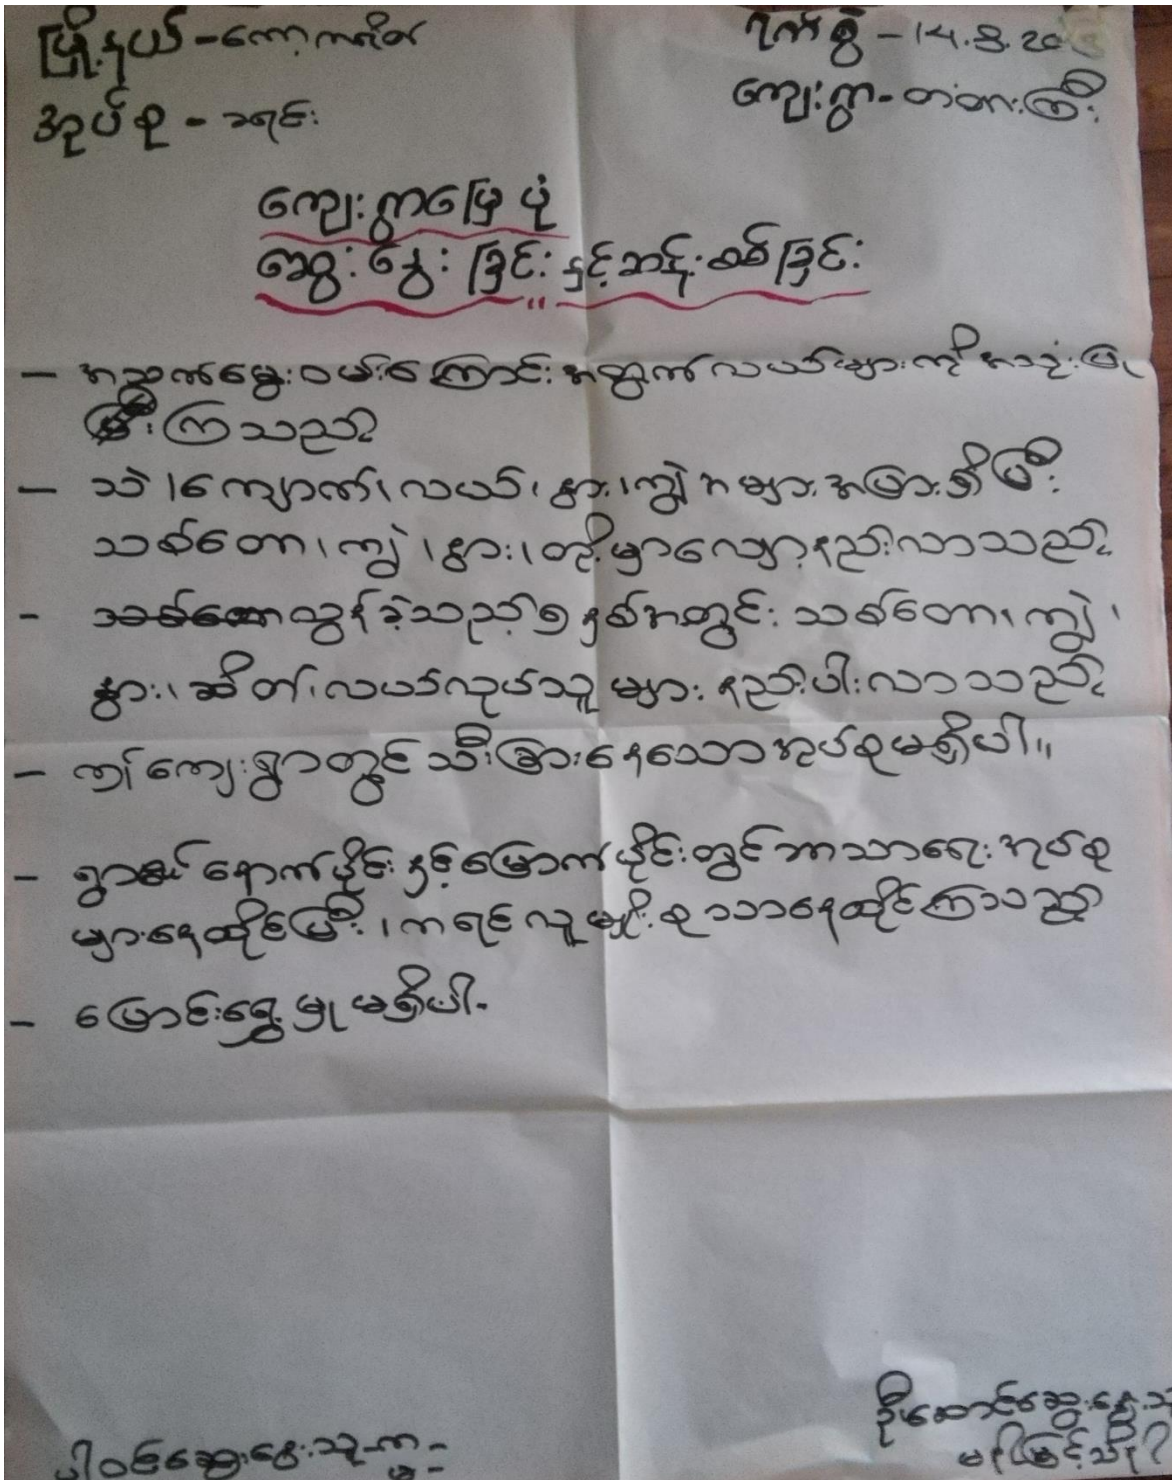 မြို့နယ် - ကော့ကရိတ်
ရက်စွဲ - 14.8.20
အုပ်စု - ခရင်း
ကျေးရွာ - တံတားကြီး
ကျေးရွာမြေပုံ
ဆွေးနွေးခြင်းနှင့်ဆန်းစစ်ခြင်း
- အသက်မွေးဝမ်းကြောင်းအတွက်လယ်များကိုအသုံးပြု
ကြသည်
- သဲ၊ကျောက်၊လယ်၊နွား၊ကျွဲအများအပြားရှိပြီး
သစ်တော၊ကျွဲ၊နွား၊တို့မှာလျော့နည်းလာသည်
- လွန်ခဲ့သည့်၅နှစ်အတွင်း သစ်တော၊ကျွဲ၊
နွား၊ဆိတ်၊လယ်လုပ်သူများနည်းပါးလာသည်
- ဤကျေးရွာတွင်သီးခြားနေသောအုပ်စုမရှိပါ။
- ရွာ၏ နောက်ပိုင်းနှင့်မြောက်ပိုင်းတွင်ဘာသာရေးအုပ်စု
များနေထိုင်ပြီး၊ကရင်လူမျိုးစုသာနေထိုင်ကြသည်
- ပြောင်းရွှေ့မှုမရှိပါ-
ဦးဆောင်ဆွေးနွေးသူ
ပါဝင်ဆွေးနွေးသူ